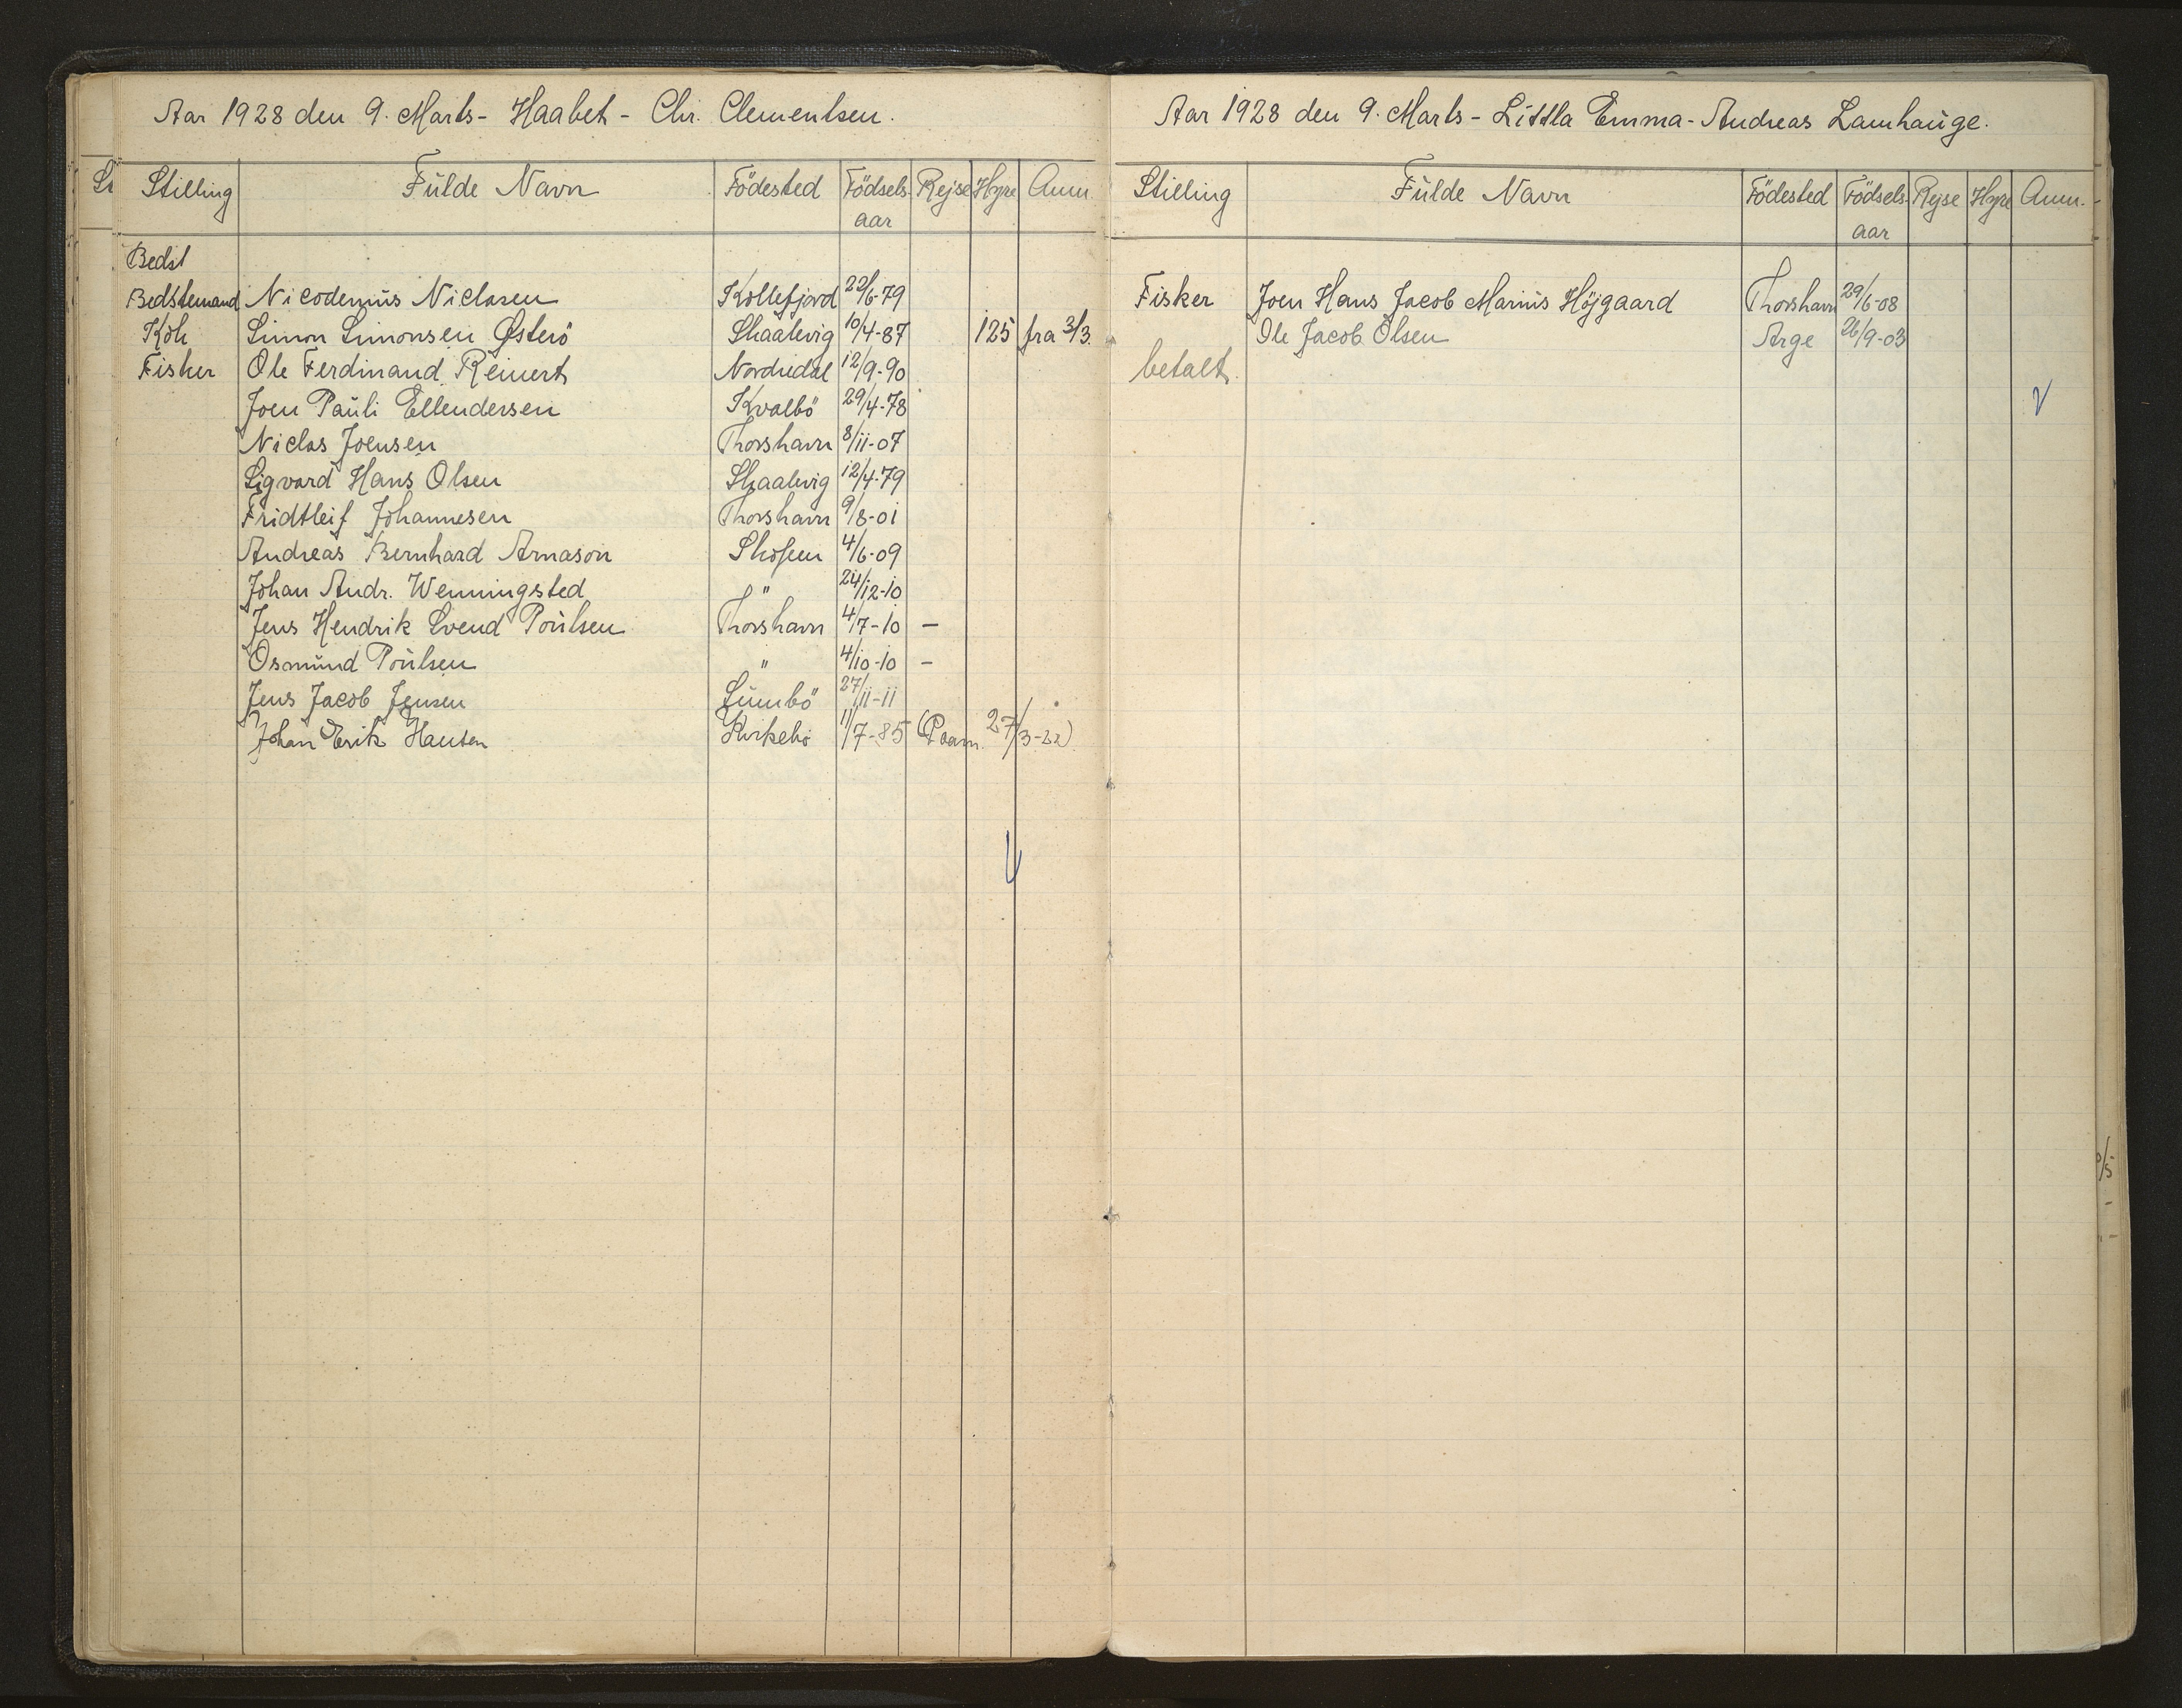 Aar 1928 den 9. Marts - Haabet - Chr. Clementsen.
Stilling Fulde Navn Födested Födsels aar Rejse Hyre Anm.
Bedst
Bedstemand Nicodemus Niclasen Kollefjord 22/6-79
Kok Simon Simonsen Østerö Skaalevig 10/4-87 125 fra 3/3.
Fisker Ole Ferdinand Reinert Nordredal 12/9-90
Joen Pauli Ellendersen Kvalbö 29/4-78
Niclas Joensen Thorshavn 8/11-07
Sigvard Hans Olsen Skaalevig 12/4-79
Fridtleif Johannesen Thorshavn 9/8-01
Andreas Bernhard Arnason Skofeen 4/6-09
Johan Andr. Wenningsted " 24/12-10
Jens Hendrik Svend Poulsen Thorshavn 4/7-10 -
Osmund Poulsen " 4/10-10 -
Jens Jacob Jensen Sumbö 27/11-11
Johan Erik Hansen Kirkebö 11/7-85 (Paam. 27/3-22)
Aar 1928 den 9. Marts - Littla Emma - Andreas Lamhauge.
Stilling Fulde Navn Födested Födsels aar Rejse Hyre Anm.
Fisker Joen Hans Jacob Marius Höjgaard Thorshavn 29/6-08
Ole Jacob Olsen Arge 26/9-03
betalt.